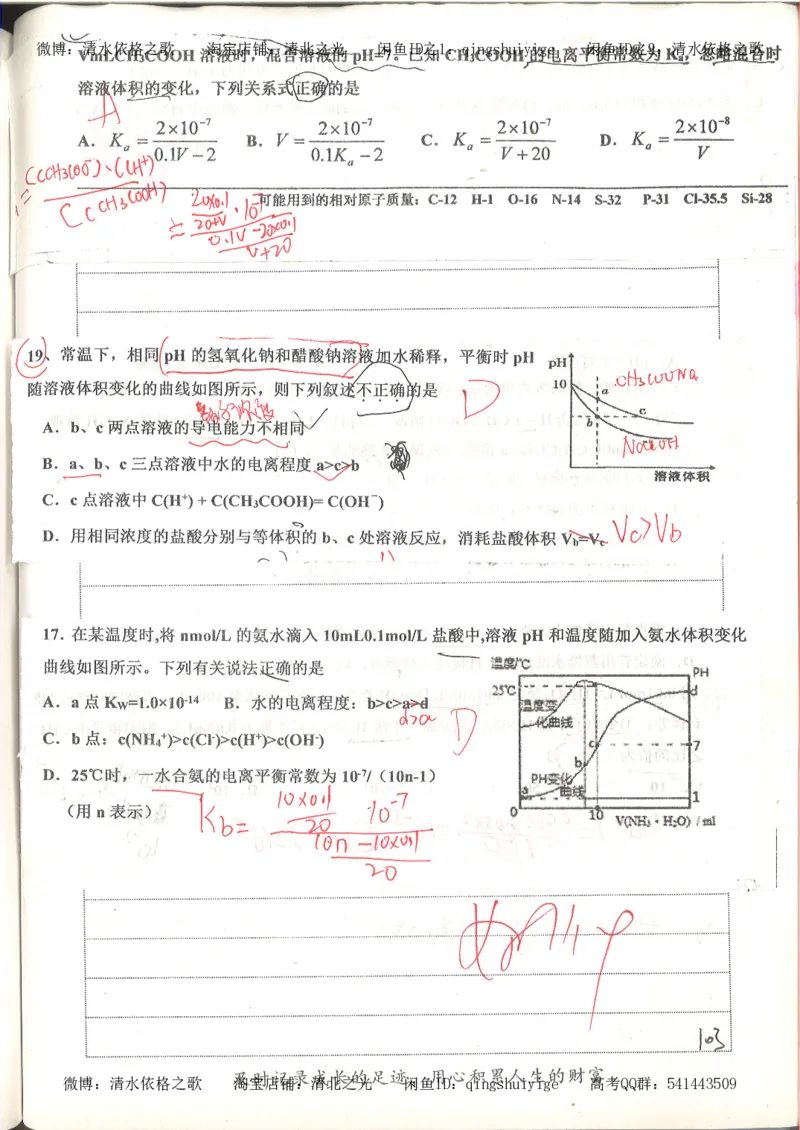 微博：清水依格之歌 淘宝店铺：清北之光 闲鱼ID之1：qingshuiyige 闲鱼ID之9：清水依格之歌
VmLCH₃COOH 溶液时，混合溶液的 pH=7。已知 CH₃COOH 的电离平衡常数为 Ka，忽略混合时
溶液体积的变化，下列关系式正确的是
A
A. Ka = 2×10⁻⁷ / 0.1V−2 B. V = 2×10⁻⁷ / 0.1Ka−2 C. Ka = 2×10⁻⁷ / V+20 D. Ka = 2×10⁻⁸ / V
= C(CH3COO⁻)·C(H⁺) / C(CH3COOH) = 20×0.1 / 20+V · 10⁻⁷ / 0.1V−20×0.1 / V+20
可能用到的相对原子质量：C-12 H-1 O-16 N-14 S-32 P-31 Cl-35.5 Si-28
19、常温下，相同 pH 的氢氧化钠和醋酸钠溶液加水稀释，平衡时 pH
随溶液体积变化的曲线如图所示，则下列叙述不正确的是
D
A．b、c 两点溶液的导电能力不相同
B．a、b、c 三点溶液中水的电离程度 a>c>b
C．c 点溶液中 C(H⁺) + C(CH₃COOH)= C(OH⁻)
D．用相同浓度的盐酸分别与等体积的 b、c 处溶液反应，消耗盐酸体积 Vb=Vc
Vc>Vb
pH
10
a
b
c
CH3COONa
NaOH
溶液体积
17．在某温度时,将 nmol/L 的氨水滴入 10mL0.1mol/L 盐酸中,溶液 pH 和温度随加入氨水体积变化
曲线如图所示。下列有关说法正确的是
A．a 点 KW=1.0×10⁻¹⁴ B．水的电离程度：b>c>a>d
d>a
D
C．b 点：c(NH₄⁺)>c(Cl⁻)>c(H⁺)>c(OH⁻)
D．25℃时，一水合氨的电离平衡常数为 10⁻⁷/（10n-1）
（用 n 表示）
Kb= 10×0.1 / 20 · 10⁻⁷ / 10n −10×0.1 / 20
温度/℃
PH
25℃
d
温度变
化曲线
c
7
b
PH变化
曲线
a
1
0
10
V(NH₃·H₂O) / ml
103
及时记录成长的足迹 用心积累人生的财富
微博：清水依格之歌 淘宝店铺：清北之光 闲鱼ID：qingshuiyige 高考QQ群：541443509